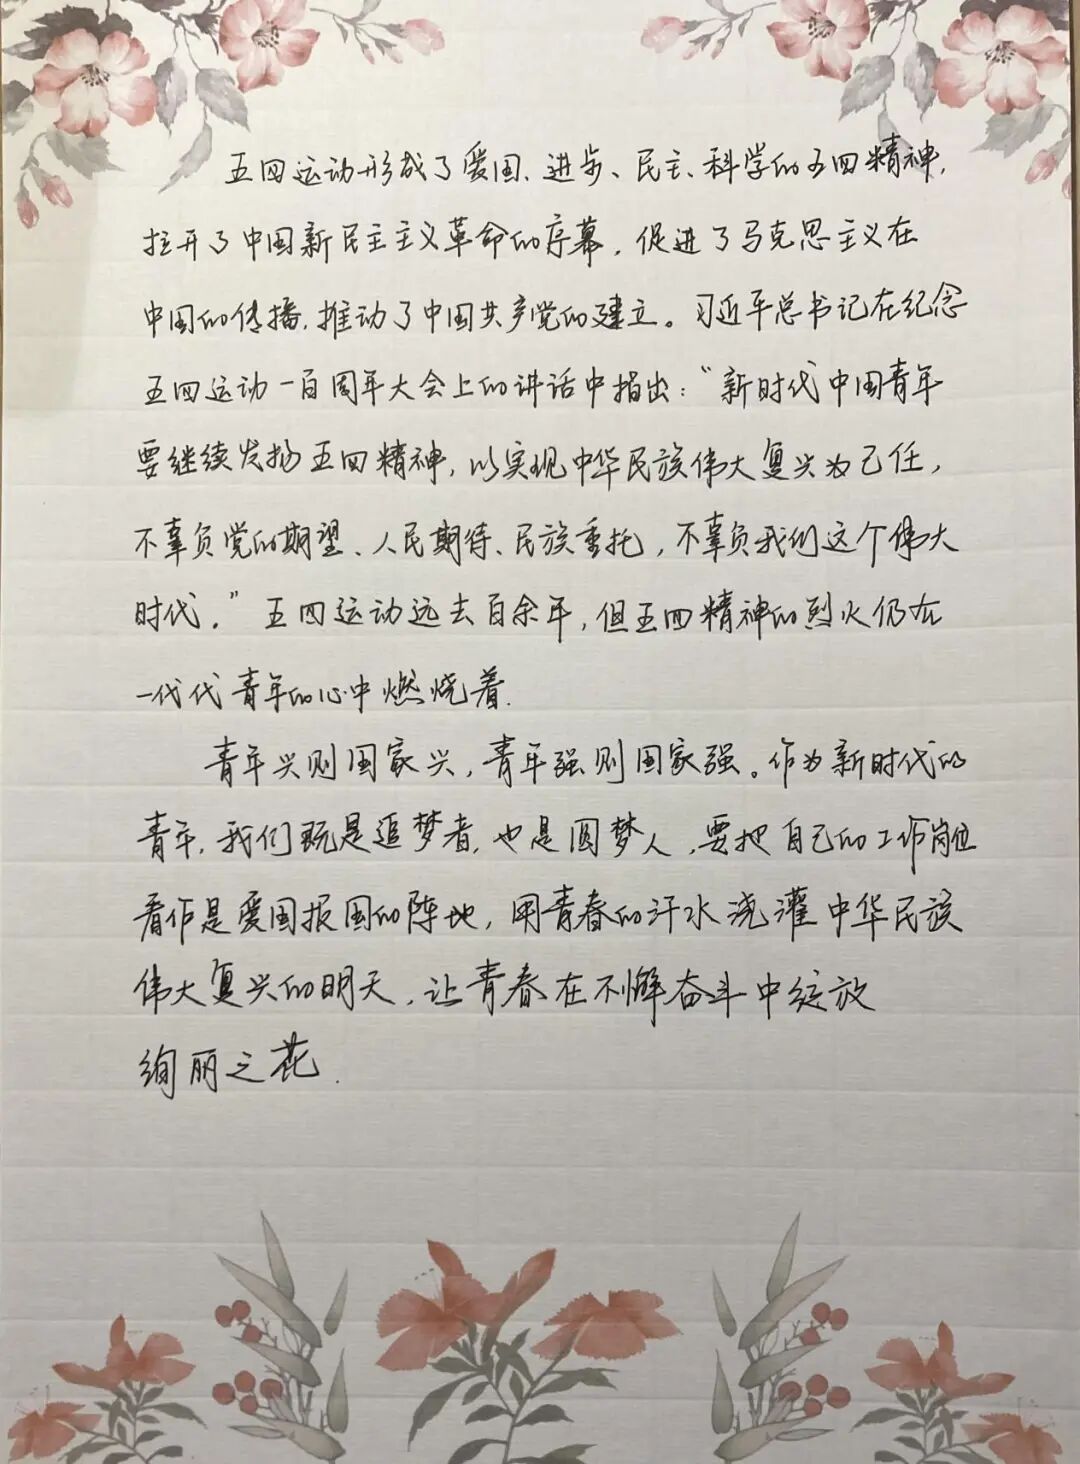 五四运动形成了爱国、进步、民主、科学的五四精神,
拉开了中国新民主主义革命的序幕,促进了马克思主义在
中国的传播,推动了中国共产党的建立。习近平总书记在纪念
五四运动一百周年大会上的讲话中指出:“新时代中国青年
要继续发扬五四精神,以实现中华民族伟大复兴为己任,
不辜负党的期望、人民期待、民族重托,不辜负我们这个伟大
时代.”五四运动远去百余年,但五四精神的烈火仍在
一代代青年的心中燃烧着.
青年兴则国家兴,青年强则国家强。作为新时代的
青年,我们既是追梦者,也是圆梦人,要把自己的工作岗位
看作是爱国报国的阵地,用青春的汗水浇灌中华民族
伟大复兴的明天,让青春在不懈奋斗中绽放
绚丽之花.